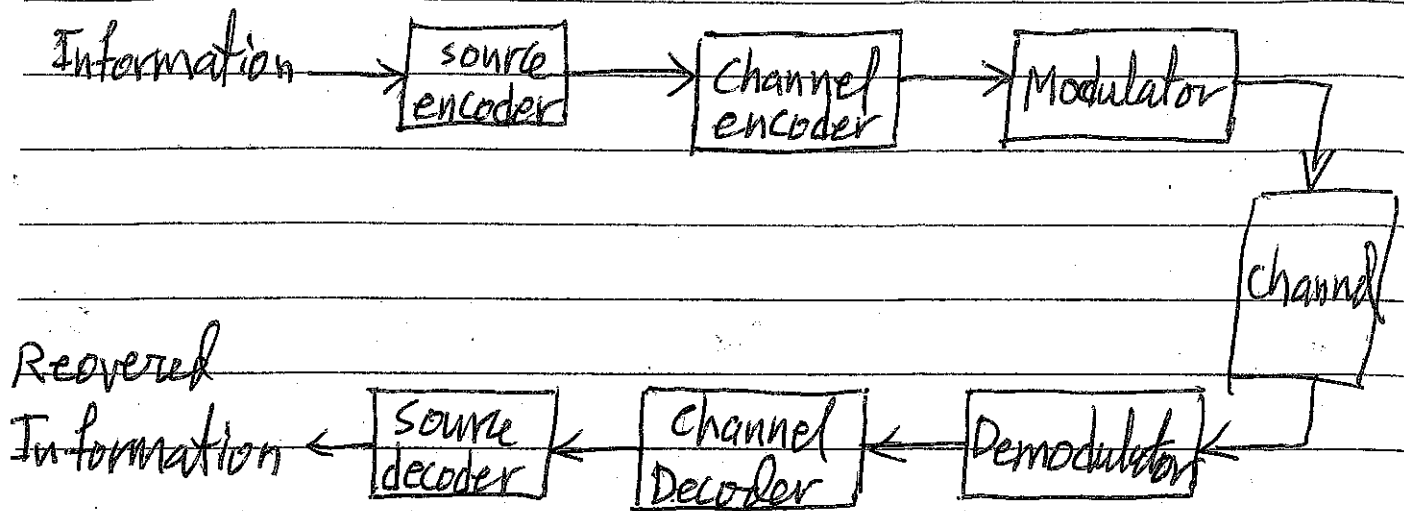 Information
source
encoder
Channel
encoder
Modulator
Channel
Reovered
Information
Source
decoder
Channel
Decoder
Demodulator